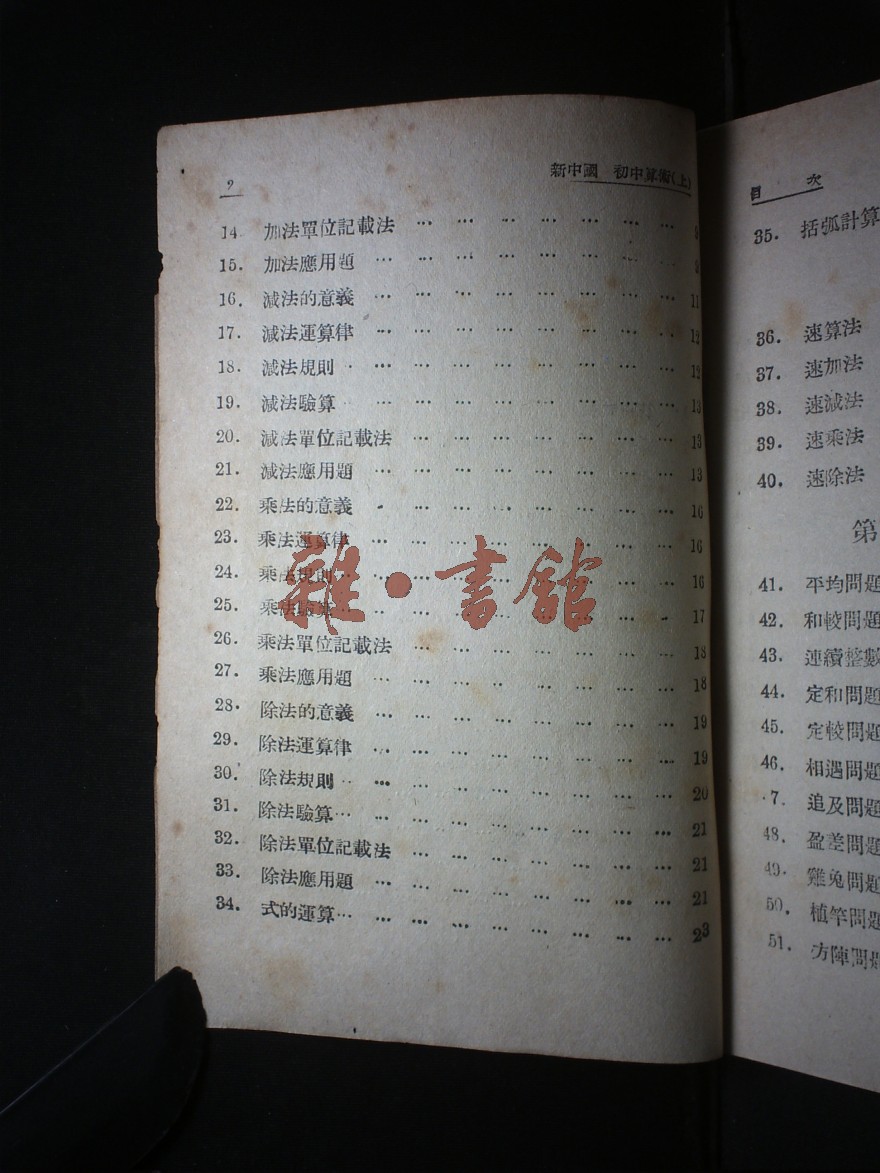 2 新中國 初中算術(上)
14. 加法單位記載法 … … … … … … … 8
15. 加法應用題 … … … … … … … … 9
16. 減法的意義 … … … … … … … … 11
17. 減法運算律 … … … … … … … … 12
18. 減法規則 … … … … … … … … 12
19. 減法驗算 … … … … … … … … 13
20. 減法單位記載法 … … … … … … … 13
21. 減法應用題 … … … … … … … … 13
22. 乘法的意義 … … … … … … … … 16
23. 乘法運算律 … … … … … … … … 16
24. 乘法規則 … … … … … … … … … 16
25. 乘法驗算 … … … … … … … … … 17
26. 乘法單位記載法 … … … … … … … 18
27. 乘法應用題 … … … … … … … … 18
28. 除法的意義 … … … … … … … … 19
29. 除法運算律 … … … … … … … … 19
30. 除法規則 … … … … … … … … … 20
31. 除法驗算 … … … … … … … … … 21
32. 除法單位記載法 … … … … … … … 21
33. 除法應用題 … … … … … … … … 21
34. 式的運算 … … … … … … … … … 23
雜·書館
目 次
35. 括弧計算
36. 速算法
37. 速加法
38. 速減法
39. 速乘法
40. 速除法
第
41. 平均問題
42. 和較問題
43. 連續整數
44. 定和問題
45. 定較問題
46. 相遇問題
7. 追及問題
48. 盈差問題
49. 雞兔問題
50. 植竿問題
51. 方陣問題